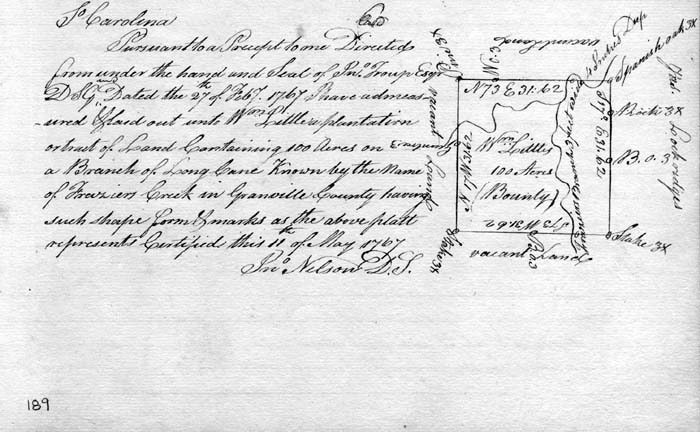 So Carolina
Pursuant to a Precept to me Directed
from under the hand and Seal of Jno. Troup Esqr
D S G and Dated the 27th of Feby. 1767 I have admeas-
ured & laid out unto Wm Little a plantation
or tract of Land Containing 100 Acres on
a Branch of Long Cane Known by the Name
of Fraziers Creek in Granville County having
such shape form & marks as the above platt
represents Certified this 11th of May 1767
Jno Nelson D. S.
vacant Land
N.O 3
N 73 E 31.62
Spanish oak 3x
Rock 3x
B. O 3
Stake 3x
S 17 E 31.62
Wm Littles
100 Acres
(Bounty)
N 17 W 31.62
S 73 W 31.62
vacant Land
Stake 3x
B O 3
vacant Land
189